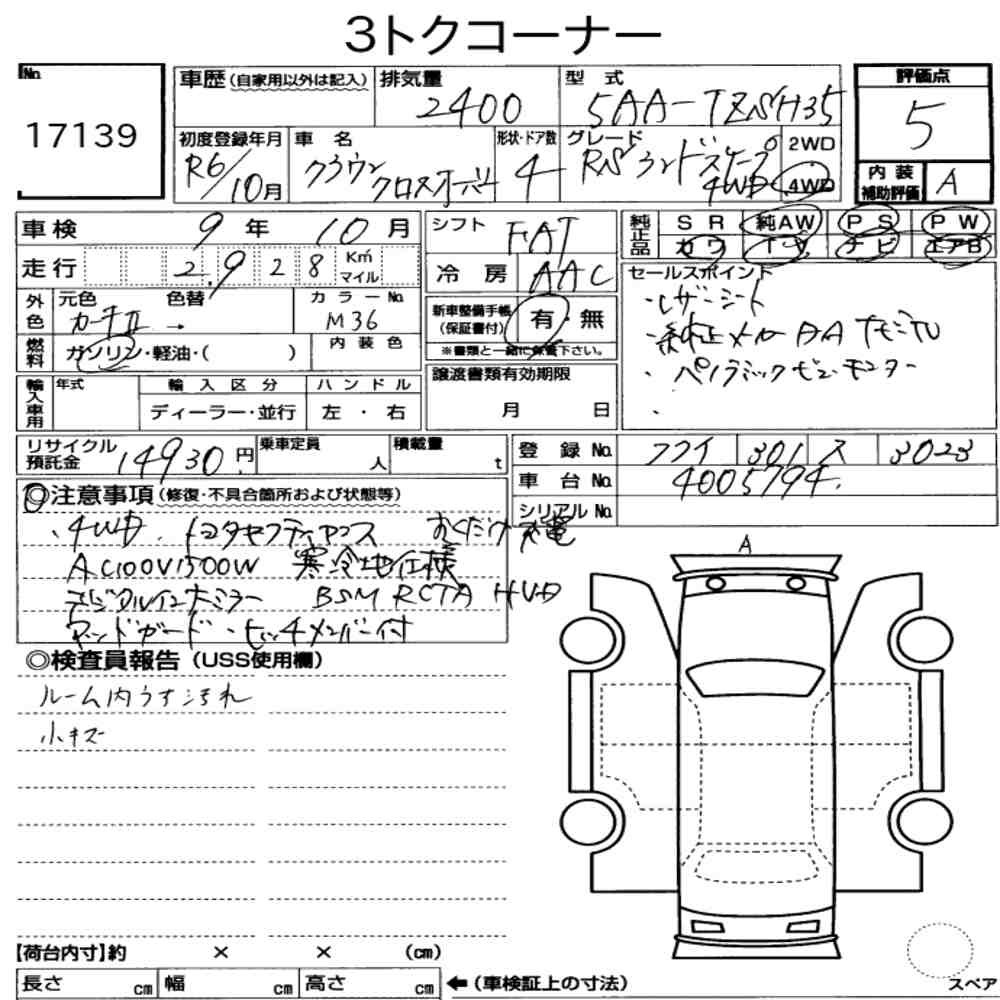 3トクコーナー
No. 17139
車歴 (自家用以外は記入)
排気量 2400
型式 5AA-TZSH35
評価点 5
初度登録年月 R6/10月
車名 クラウン クロスオーバー
形状・ドア数 4
グレード RS ランドスケープ 4WD
2WD
4WD
内装補助評価 A
車検 9年 10月
シフト FAT
純正品 SR 純AW PS PW
カワ TV ナビ エアB
走行 2,928 Km マイル
冷房 AAC
セールスポイント
・レザーシート
・純正メーカー DA ナビTV
・パノラミックビューモニター
・
外色 元色 色替 カラーNo.
→ M36
新車整備手帳 (保証書付) 有・無
※書類と一緒に保管下さい。
燃料 ガソリン・軽油・( )
内装色
輸入車用 年式 輸入区分 ハンドル
ディーラー・並行 左・右
譲渡書類有効期限
月 日
リサイクル預託金 14930円
乗車定員 人
積載量 t
登録No. 301 ス 3023
車台No. 4005794.
シリアルNo.
◎注意事項 (修復・不具合箇所および状態等)
・4WD. トヨタセーフティセンス おくだけ充電
AC100V1500W 寒冷地仕様
デジタルインナーミラー BSM RCTA HUD
マッドガード・ヒッチメンバー付
◎検査員報告 (USS使用欄)
ルーム内うすヨゴレ
小キズ
A
【荷台内寸】約 × × (cm)
長さ cm 幅 cm 高さ cm ←(車検証上の寸法)
スペア